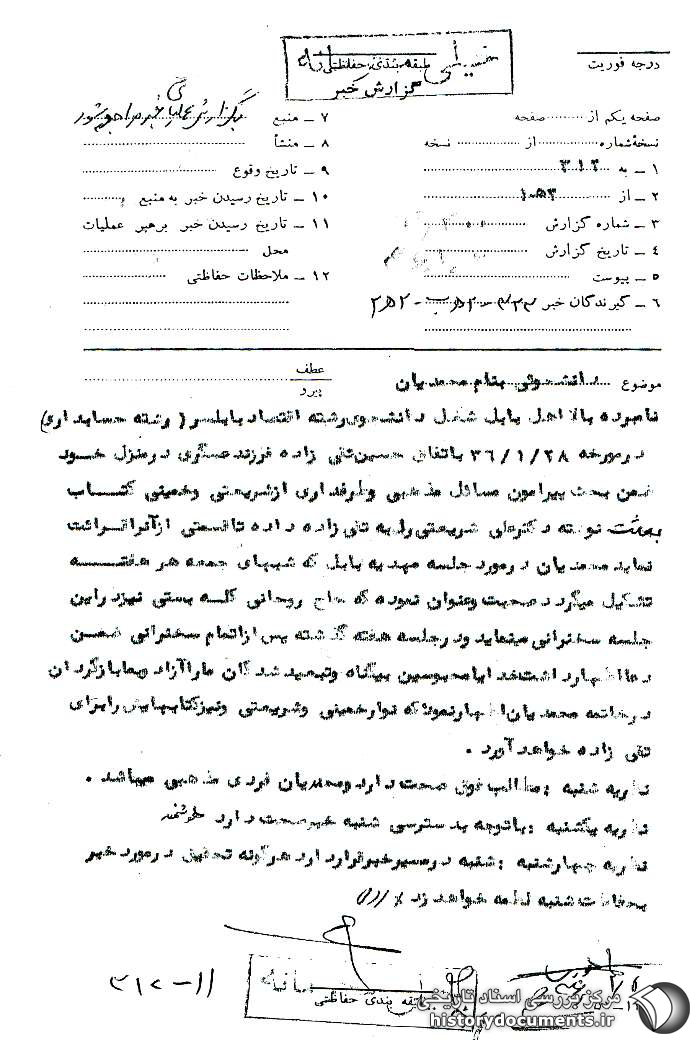 درجه فوریت
طبقه‌بندی حفاظتی
گزارش خبر
صفحه یکم از ........ صفحه
نسخهٔ شماره ........ از ........ نسخه
۱ ـ به ۳۱۲
۲ ـ از
۳ ـ شماره گزارش
۴ ـ تاریخ گزارش
۵ ـ پیوست
۶ ـ گیرندگان خبر
۷ ـ منبع
۸ ـ منشأ
۹ ـ تاریخ وقوع
۱۰ ـ تاریخ رسیدن خبر به منبع
۱۱ ـ تاریخ رسیدن خبر برهبر عملیات
محل
۱۲ ـ ملاحظات حفاظتی
عطف
موضوع دانشجوئی بنام محمدیان
نامبرده بالا اهل بابل شغل دانشجوی رشته اقتصاد بابلسر ( رشته حسابداری)
درمورخه ۳۶/۱/۲۸ باتفاق حسین تقی زاده فرزند عسگری درمنزل خود
ضمن بحث پیرامون مسائل مذهبی وطرفداری ازشریعتی وخمینی کتاب
بعثت نوشته دکترعلی شریعتی را به تقی زاده داده تا قسمتی ازآنرا قرائت
نماید محمدیان درمورد جلسه مهدیه بابل که شبهای جمعه هر هفته
تشکیل میگردد صحبت وعنوان نموده که حاج روحانی کله بستی نیزدراین
جلسه سخنرانی مینماید ودرجلسه هفته گذشته پس ازاتمام سخنرانی ضمن
دعا اظهارداشت خدایا محبوسین بیگناه وتبعید شدگان مارا آزاد وبما بازگردان
درخاتمه محمدیان اظهارنمود که نوارخمینی وشریعتی ونیزکتابهایش را برای
تقی زاده خواهد آورد .
نظریه شنبه : مطالب فوق صحت دارد ومحمدیان فردی مذهبی میباشد .
نظریه یکشنبه : باتوجه بدسترسی شنبه خبرصحت دارد
نظریه چهارشنبه : شنبه درمسیرخبرقراردارد هرگونه تحقیق درمورد خبر
بحفاظت شنبه لطمه خواهد زد
۳۱۲-۱۱
طبقه بندی حفاظتی
مرکز بررسی اسناد تاریخی
historydocuments.ir